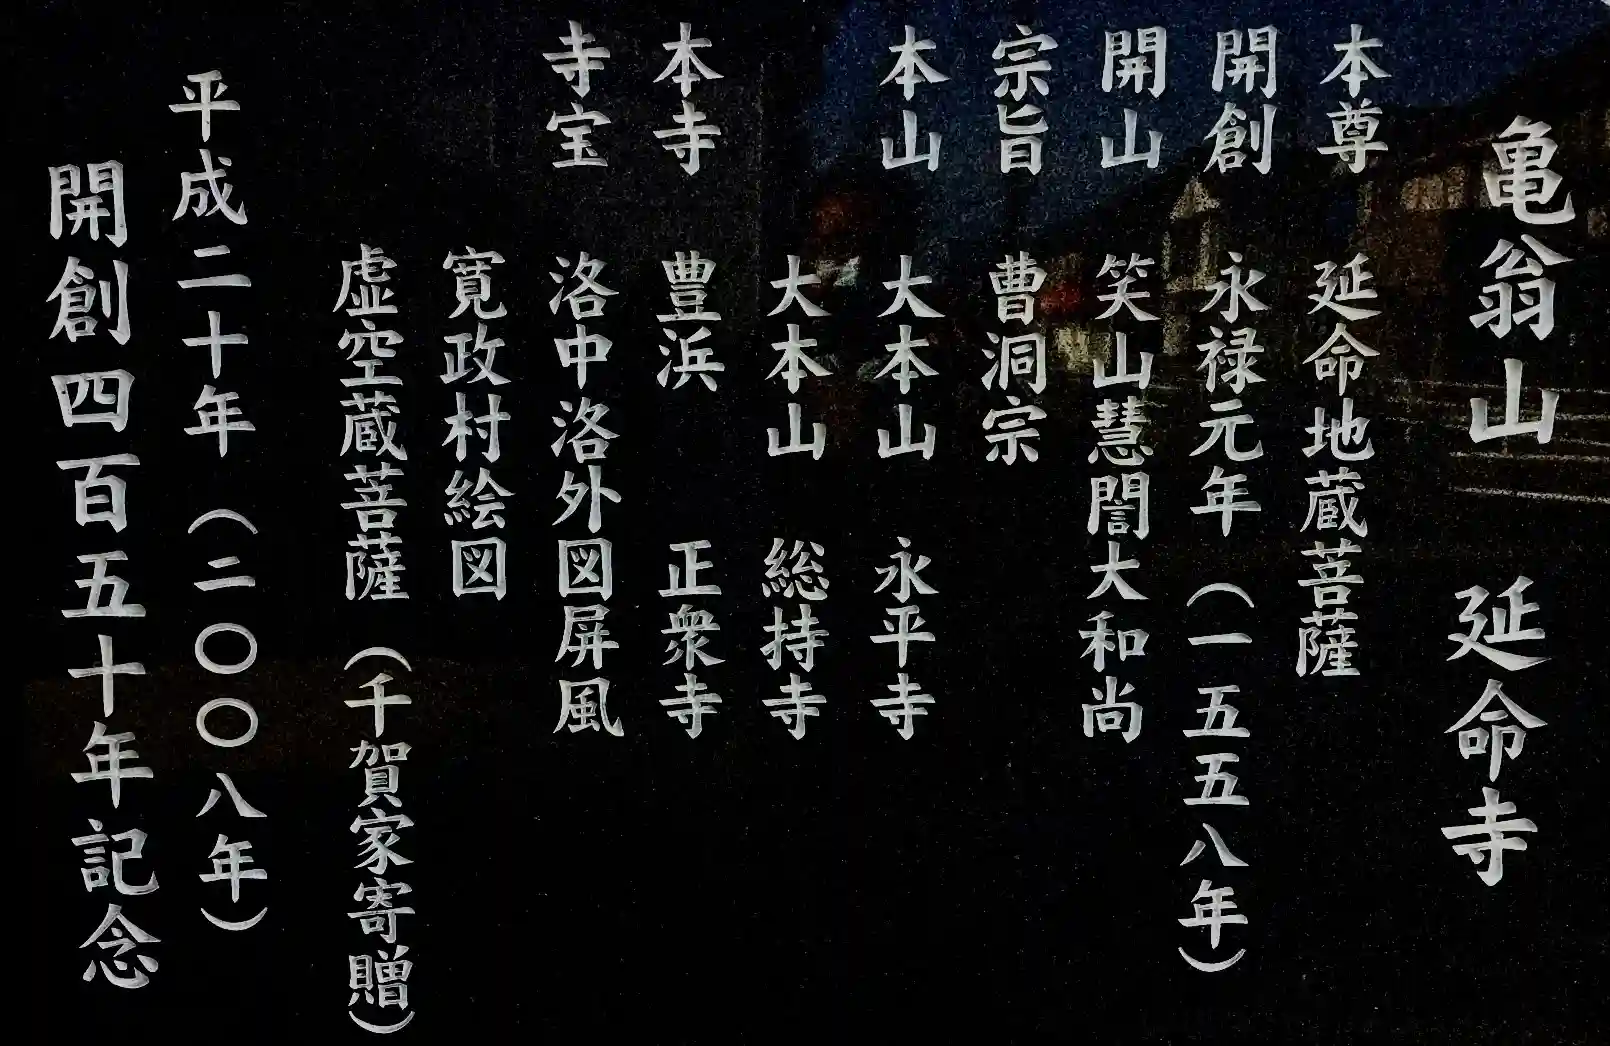 亀翁山　延命寺
本尊　延命地蔵菩薩
開創　永禄元年（一五五八年）
開山　笑山慧誾大和尚
宗旨　曹洞宗
本山　大本山　永平寺
大本山　総持寺
本寺　豊浜　正衆寺
寺宝　洛中洛外図屏風
寛政村絵図
虚空蔵菩薩（千賀家寄贈）
平成二十年（二〇〇八年）
開創四百五十年記念